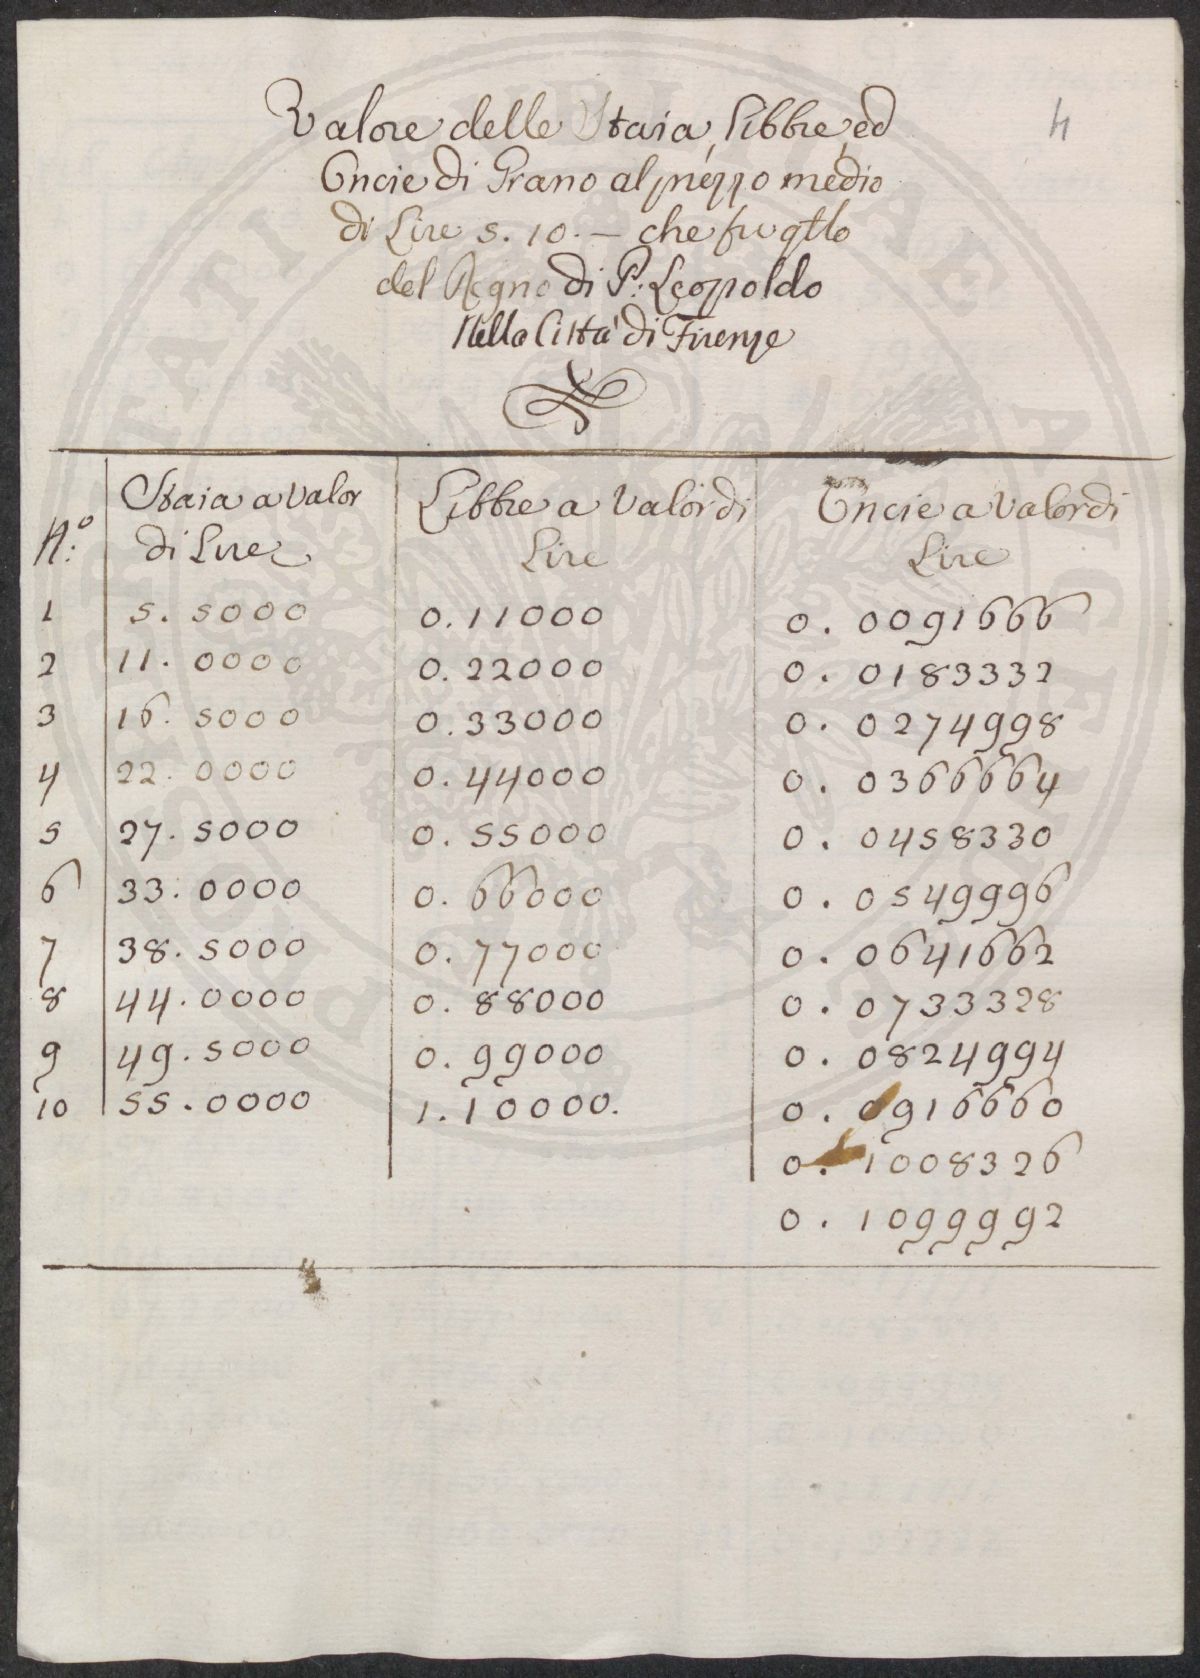 Valore delle Staia, Libbre, ed
Oncie di Grano al prezzo medio
di Lire 5. 10. — che fu qtlo
del Regno di P. Leopoldo
Nella Città di Firenze
4
N.o | Staia a Valor di Lire | Libbre a Valor di Lire | Oncie a Valor di Lire
1 | 5. 5000 | 0. 11000 | 0. 0091666
2 | 11. 0000 | 0. 22000 | 0. 0183332
3 | 16. 5000 | 0. 33000 | 0. 0274998
4 | 22. 0000 | 0. 44000 | 0. 0366664
5 | 27. 5000 | 0. 55000 | 0. 0458330
6 | 33. 0000 | 0. 66000 | 0. 0549996
7 | 38. 5000 | 0. 77000 | 0. 0641662
8 | 44. 0000 | 0. 88000 | 0. 0733328
9 | 49. 5000 | 0. 99000 | 0. 0824994
10 | 55. 0000 | 1. 10000. | 0. 0916660
0. 1008326
0. 1099992